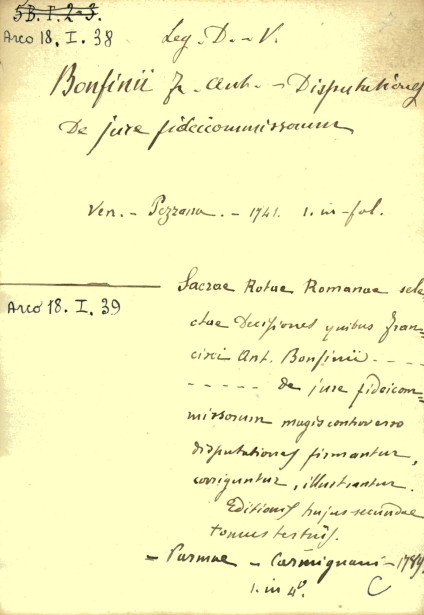 5B.I.2-3.
Arco 18. I. 38
Leg. D. V.
Bonfinii Fr. Ant. - Disputationes
De jure fideicommissorum
Ven. - Pezzana. - 1741. 1. in-fol.
Arco 18. I. 39
Sacrae Rotae Romanae sele=
ctae Decisiones quibus Fran=
cisci Ant. Bonfinii - - - -
- - - - - de jure fideicom=
missorum magis controverso
disputationes firmantur,
corriguntur, illustrantur.
Editionis hujus secundae
tomus tertius.
- Parmae - Carmignani -
1. in 4º.
C